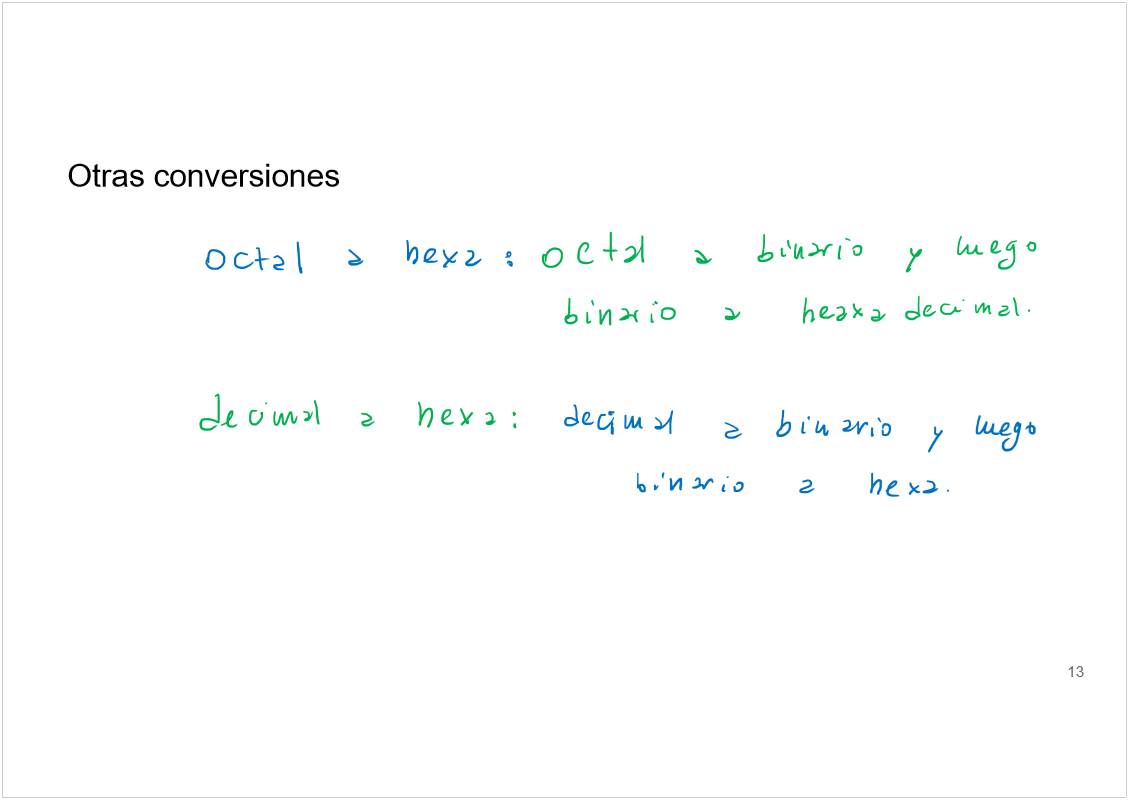 Otras conversiones
octal a hexa: octal a binario y luego
binario a heaxadecimal.
decimal a hexa: decimal a binario y luego
binario a hexa.
13